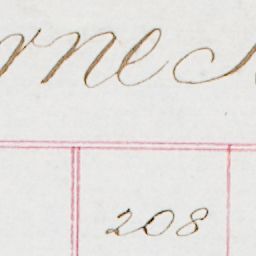 rne
208